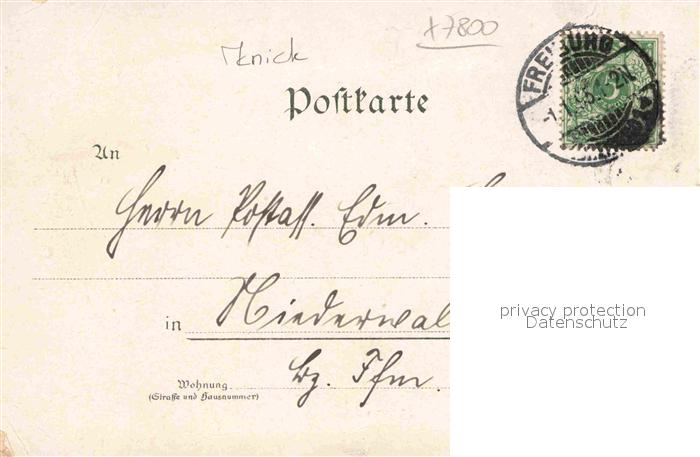 x7800
Knick
Postkarte
FREIBURG
An
Herrn Postass. Edm.
in Niederwal
Bz. Ffm.
Wohnung
(Straße und Hausnummer)
privacy protection
Datenschutz